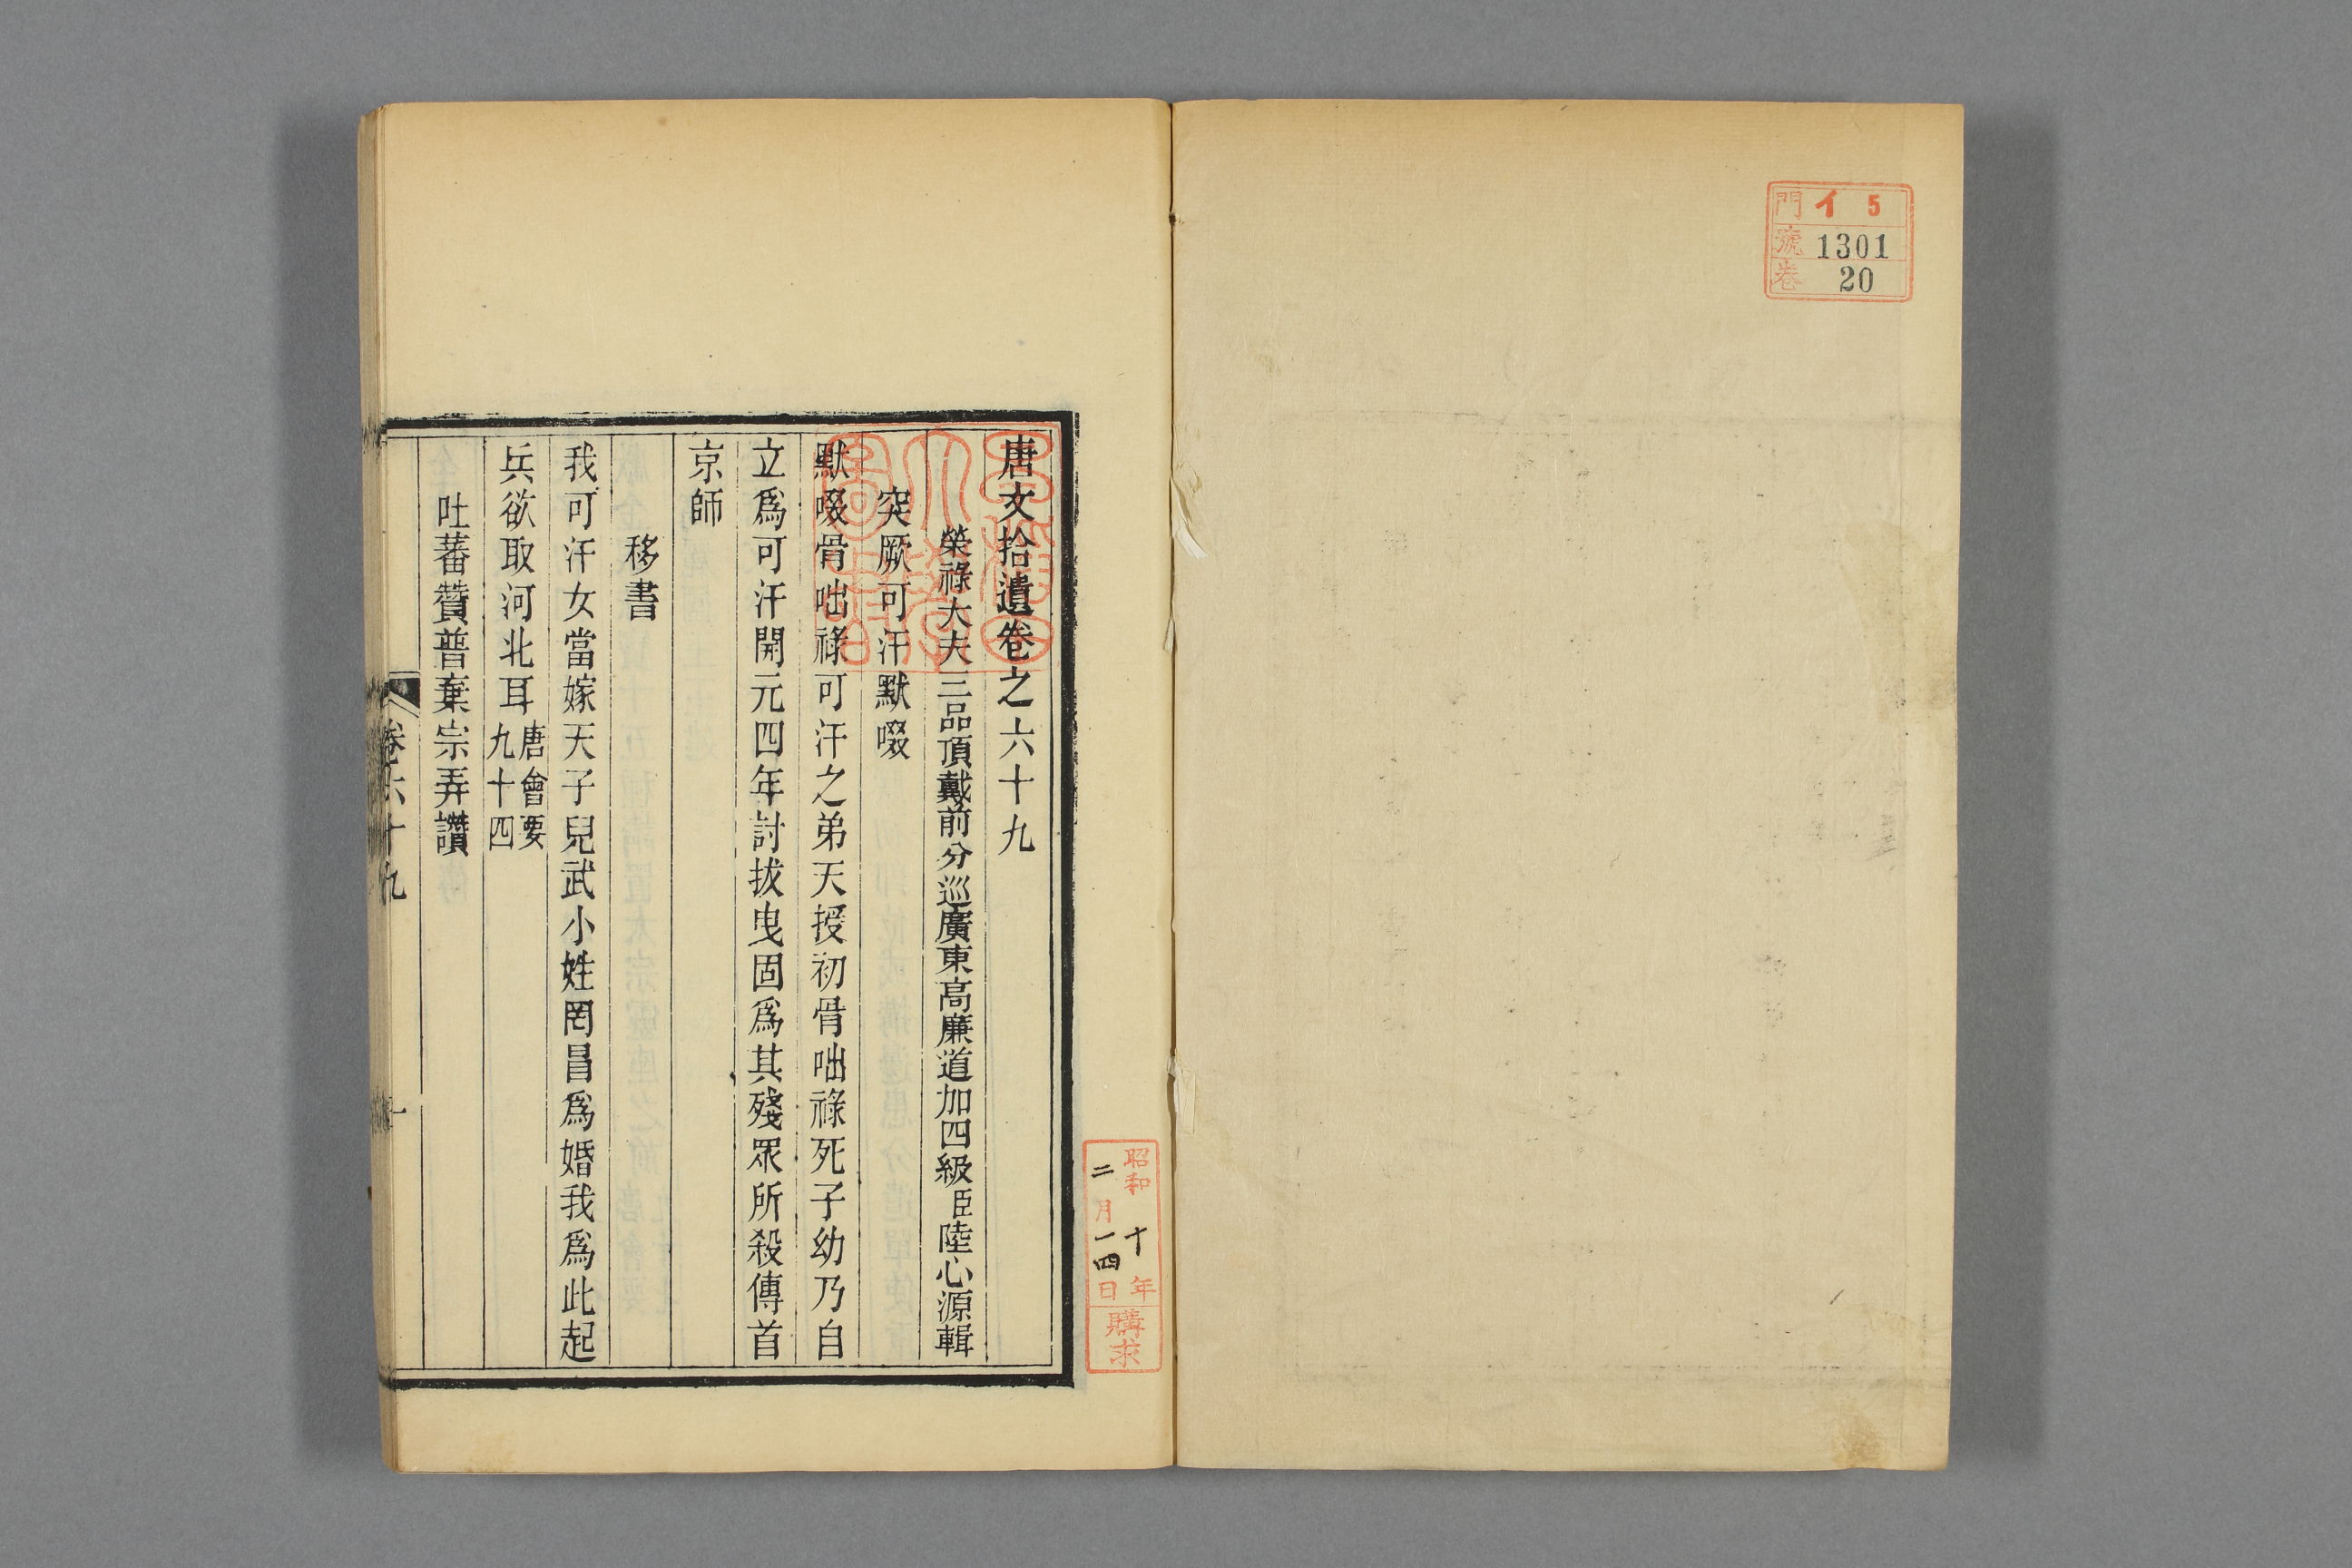 門 イ 5
號 1301
卷 20
唐文拾遺卷之六十九
榮祿大夫三品頂戴前分巡廣東高廉道加四級臣陸心源輯
突厥可汗默啜
默啜骨咄祿可汗之弟天授初骨咄祿死子幼乃自
立爲可汗開元四年討拔曳固爲其殘眾所殺傳首
京師
移書
我可汗女當嫁天子兒武小姓罔昌爲婚我爲此起
兵欲取河北耳唐會要九十四
吐蕃贊普棄宗弄讚
卷六十九
一
昭和十年
二月一四日
購求